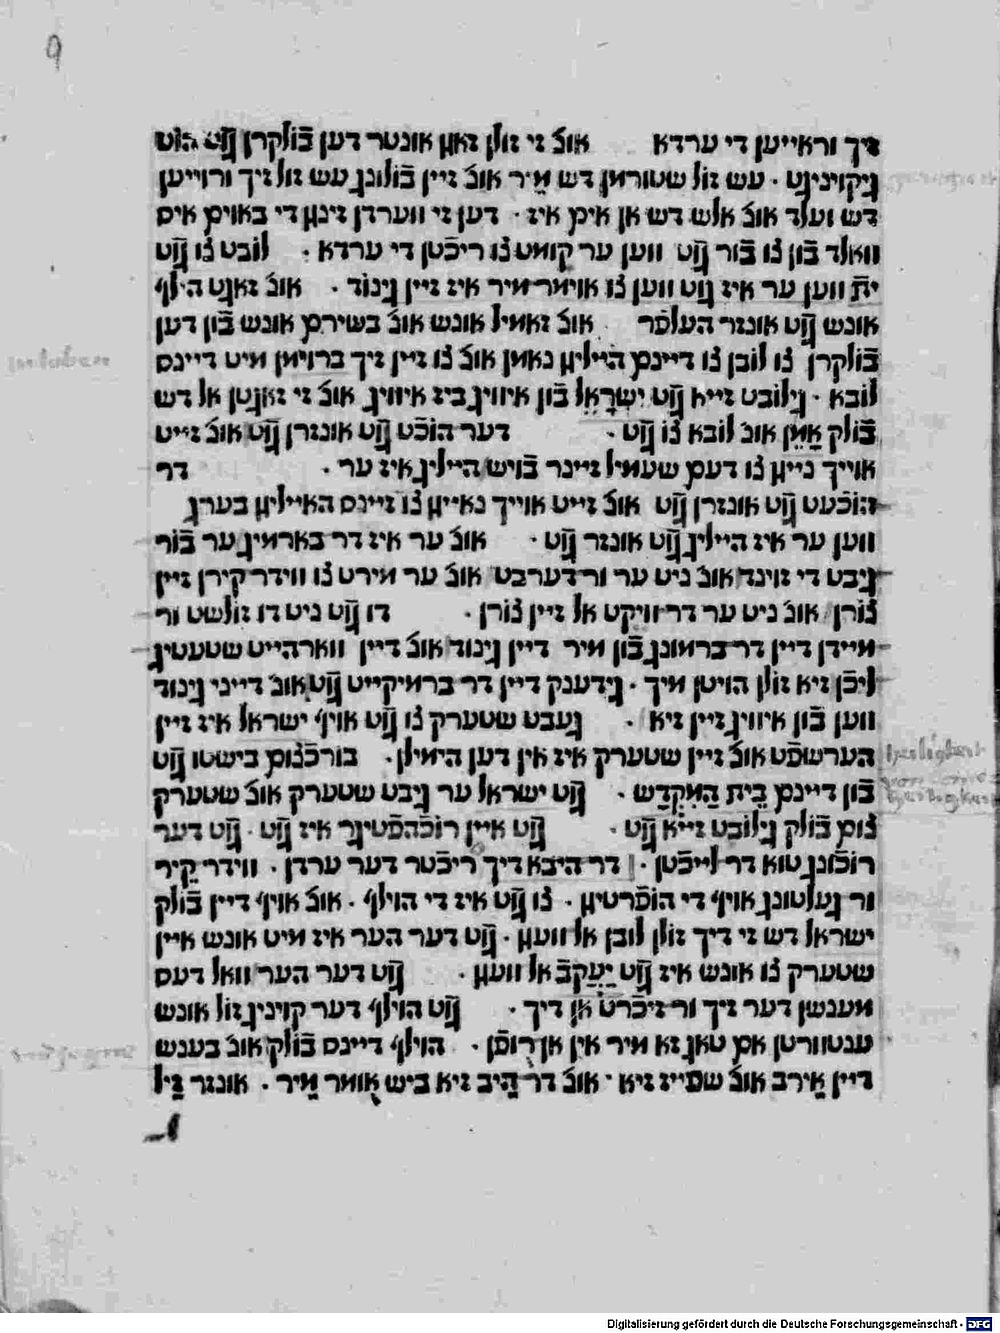 9
זיך ור־אייען די ערדא אובֿ זי זולן זאגן אונטר דען בֿולקרן גֿוט הוט
גיקויניגט · עש זול שטורמן דש מֵיר אובֿ זיין בֿולונג עש זול זיך ורוייען
דש ועלד אובֿ אלש דש אן אים איז · דען זי ווערדן זינגן די באוים אים
וואלד בֿון צו בֿור גֿוט ווען ער קומט צו ריכֿטן די ערדא · לובט צו גֿוט
ית ווען ער איז גוט ווען צו אוימר מיר איז זיין גינוד · אובֿ זאגט הילף
אונש גֿוט אונזר העלפֿר אובֿ זאמיל אונש אובֿ בשירם אונש בֿון דען
בֿולקרן צו לובן צו דיינם היילגן נאמן אובֿ צו זיין זיך ברוימן מיט דיינם
לובא · גילובט זייא גֿוט יִשְרָאֵל בֿון איוויג ביז איוויג אובֿ זי זאגטן אל דש
בֿולק אָמֵן אובֿ לובא צו גֿוט · דער הוכֿט גֿוט אונזרן גֿוט אובֿ זייט
אוייך נייגן צו דעם שעמיל זיינר בֿויש היילג איז ער · דר
הוכֿעט גֿוט אונזרן גֿוט אובֿ זייט אוייך נאייגן צו זיינם האייליגן בערג
ווען ער איז היילג גֿוט אונזר גֿוט · אובֿ ער איז דר בארמיג ער בֿור
גיבט די זוינד אובֿ ניט ער ור־דערבט אובֿ ער מירט צו ווידר קירן זיין
צורן אובֿ ניט ער דר וויקט אל זיין צורן · דו גֿוט ניט דו זולשט ור
מיידן דיין דר ברמונג בֿון מיר דיין גינוד אובֿ דיין ווארהייט שטעטיג
ליכֿן זיא זולן הויטן מיך · גידענק דיין דר ברמיקייט גֿוט אובֿ דייני גינוד
ווען בֿון איוויג זיין זיא · געבט שטערק צו גֿוט אויף ישראל איז זיין
הערשפֿט אובֿ זיין שטערק איז אין דען הימילן · בורכֿצום בישטו גֿוט
בֿון דיינם בֵית הַמִקְדָש · גֿוט ישראל ער גיבט שטערק אובֿ שטערק
צום בֿולק גילובט זייא גֿוט · גֿוט איין רוכֿהפֿטיגר איז גֿוט · גֿוט דער
רוכֿונג טוא דר לייכֿטן · דר היבא דיך ריכֿטר דער ערדן · ווידר קיר
ור געלטונג אויף די הופֿרטיגן · צו גֿוט איז די הוילף · אובֿ אויף דיין בֿולק
ישראל דש זי דיך זולן לובן אל וועגן · גֿוט דער הער איז מיט אונש איין
שטערק צו אונש איז גֿוט יַעֲקֹב אל וועגן · גֿוט דער הער וואל דעם
מענשן דער זיך ור־זיכֿרט אן דיך · גֿוט הוילף דער קויניג זול אונש
ענטוורטן אם טאג זא מיר אין אן רופֿן · הוילף דיינם בֿולק אובֿ בענש
דיין אֵירב אובֿ שפייז זיא · אובֿ דר הֵיב זיא ביש אומר מֵיר · אונזר זֵיל
Digitalisierung gefördert durch die Deutsche Forschungsgemeinschaft - DFG